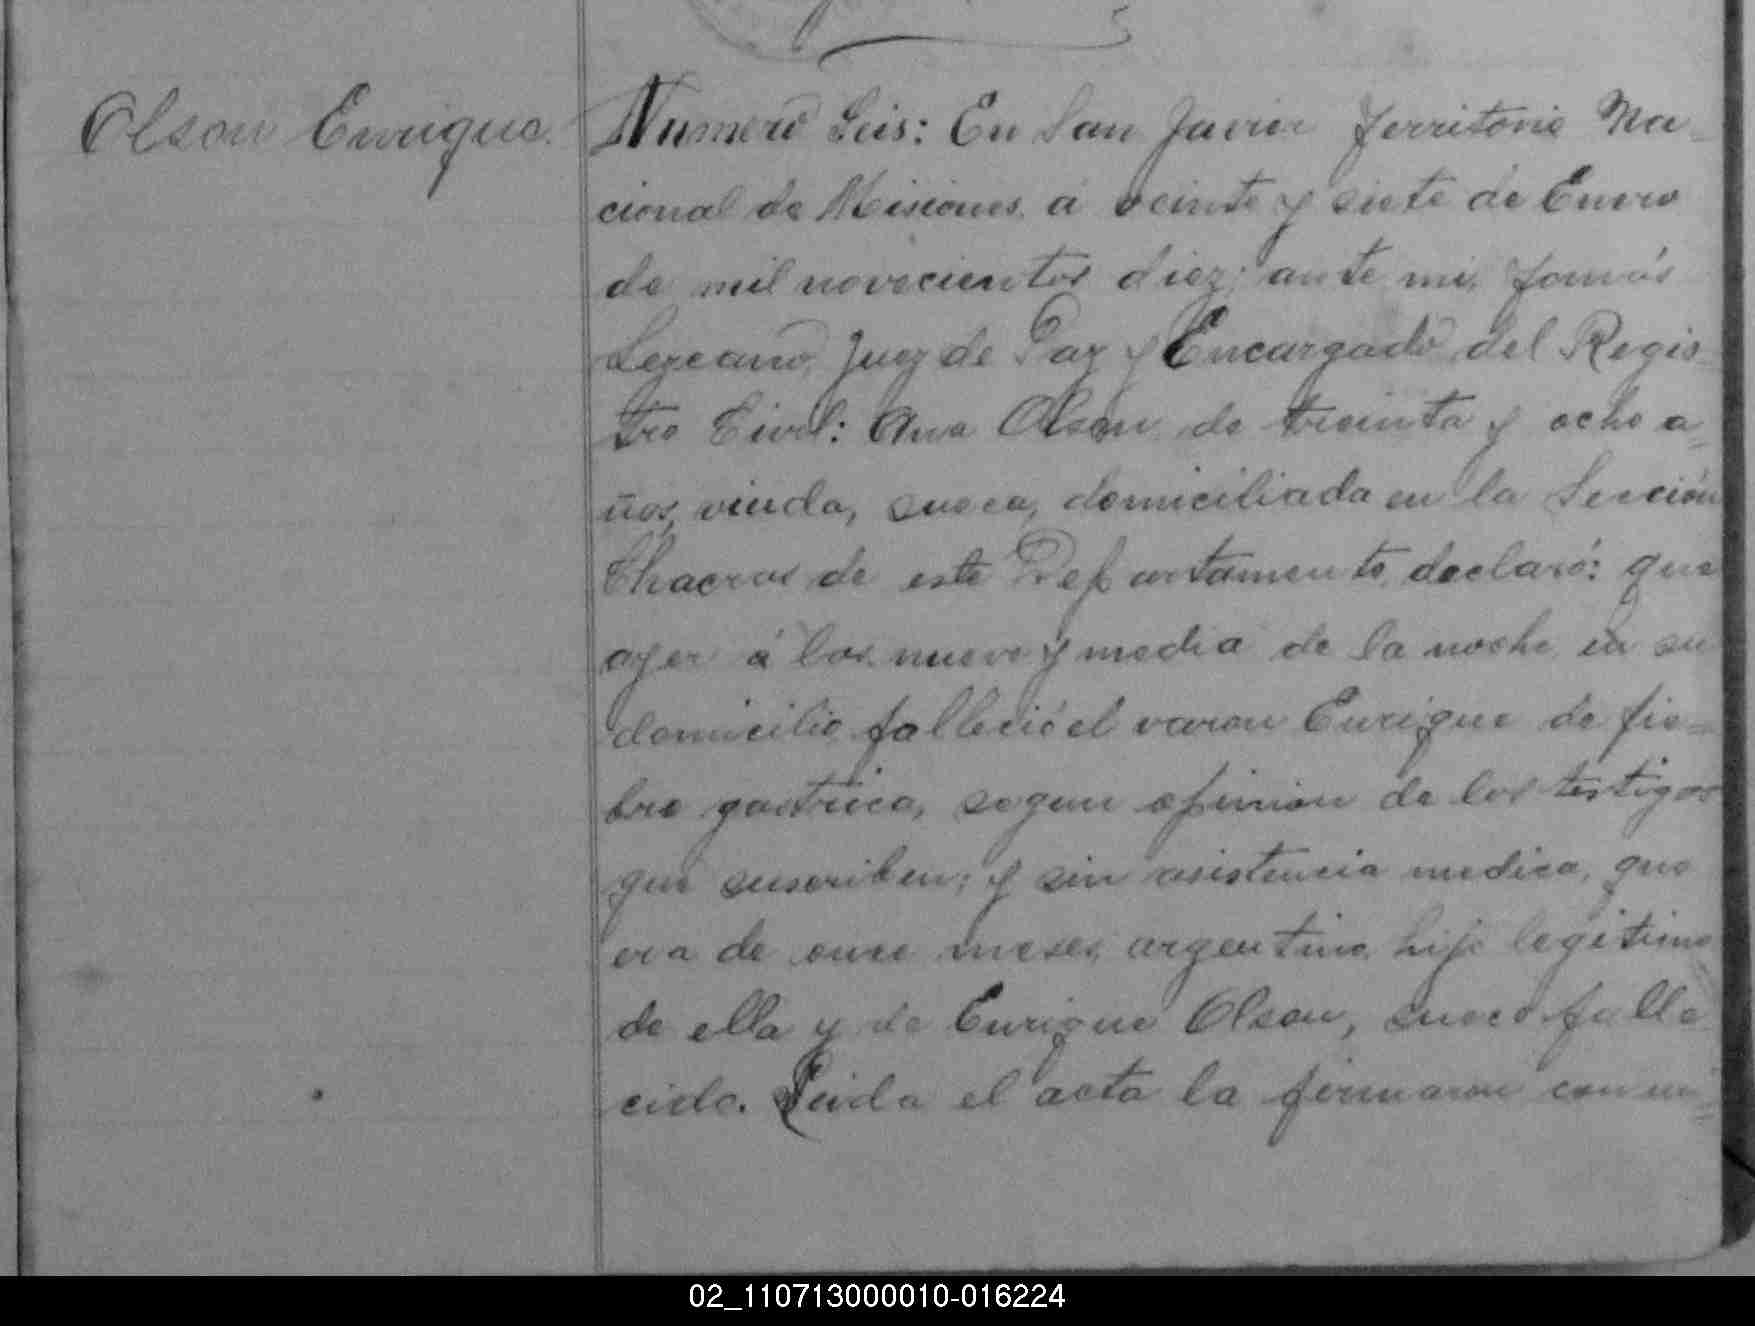 Olson Enrique.
Numero Seis: En San Javier Territorio Na-
cional de Misiones, á veinte y siete de Enero
de mil novecientos diez; ante mi, Tomás
Lezcano, Juez de Paz y Encargado del Regis-
tro Civil: Ana Olson, de treinta y ocho a-
ños, viuda, sueca, domiciliada en la Sección
Chacras de este Departamento, declaró: que
ayer á las nueve y media de la noche, en su
domicilio, falleció el varon Enrique de fie-
bre gastrica, segun opinion de los testigos
que suscriben; y sin asistencia medica, que
era de once meses, argentino, hijo legitimo
de ella y de Enrique Olson, sueco, falle
cido. Leida el acta la firmaron con mi-
02_110713000010-016224